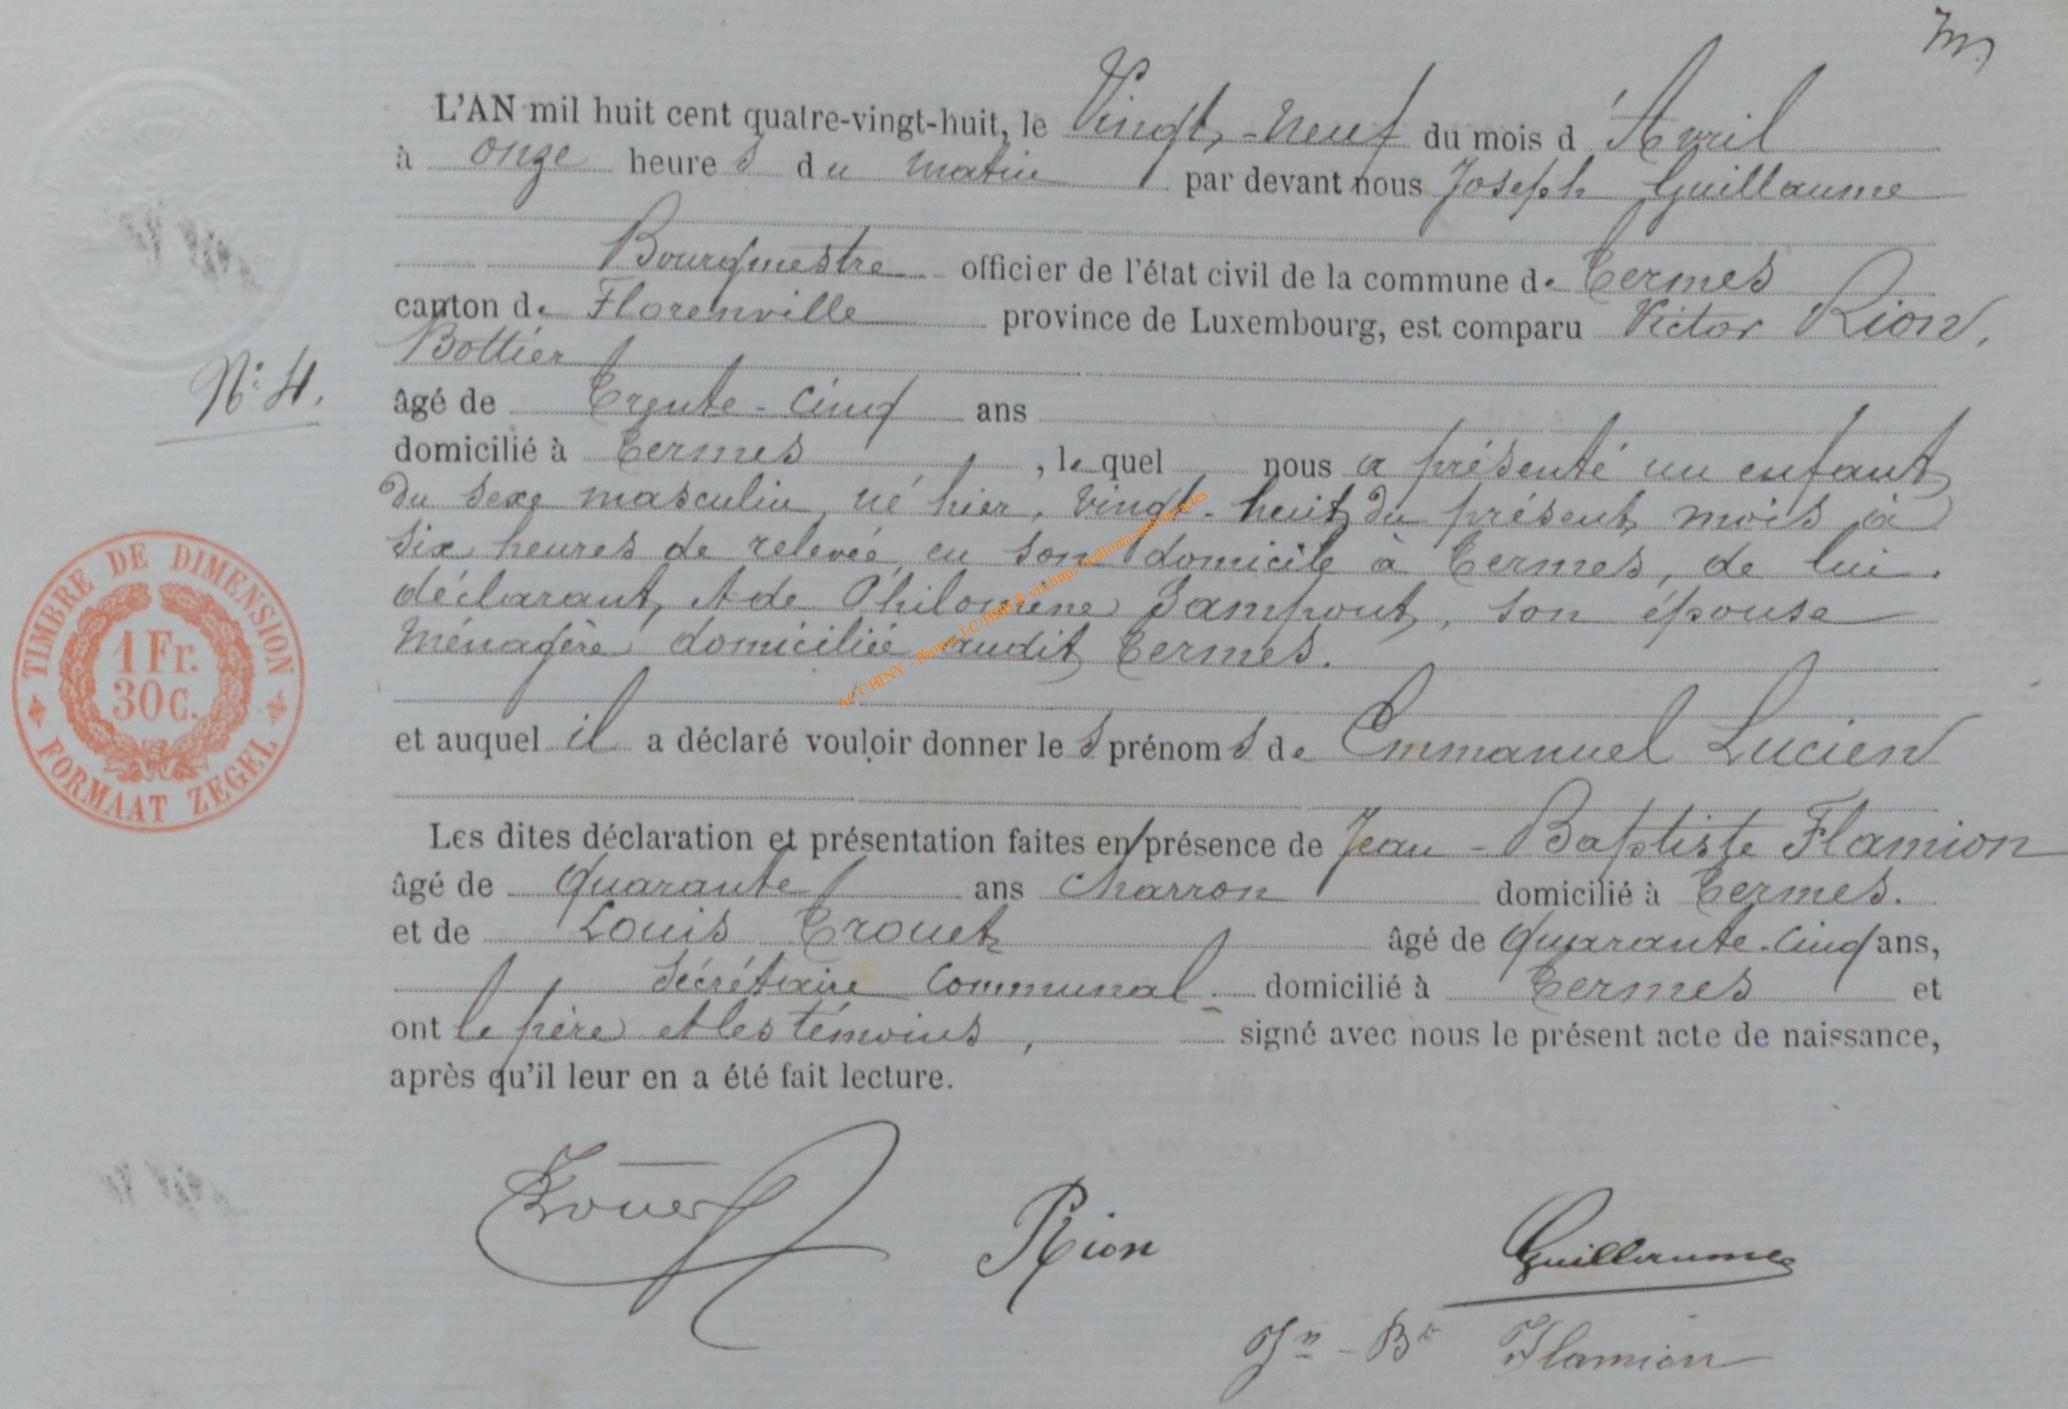 m
L'AN mil huit cent quatre-vingt-huit, le Vingt-neuf du mois d'Avril
à onze heures du matin par devant nous Joseph Guillaume
Bourgmestre officier de l'état civil de la commune de Termes
canton de Florenville province de Luxembourg, est comparu Victor Rion,
Bottier
N° 4.
âgé de Trente-cinq ans
domicilié à Termes, lequel nous a présenté un enfant
du sexe masculin, né hier, vingt-huit du présent mois à
six heures de relevée, en son domicile à Termes, de lui
déclarant, et de Philomène Sampont, son épouse
Ménagère domiciliée audit Termes.
AC CHINY - photos J.C. via http://wallonia.
TIMBRE DE DIMENSION
1 Fr.
30 c.
FORMAAT ZEGEL
et auquel il a déclaré vouloir donner les prénoms de Emmanuel Lucien
Les dites déclaration et présentation faites en présence de Jean-Baptiste Flamion
âgé de quarante ans charron domicilié à Termes.
et de Louis Trouet âgé de quarante-cinq ans,
secrétaire communal domicilié à Termes et
ont le père et les témoins, signé avec nous le présent acte de naissance,
après qu'il leur en a été fait lecture.
Trouet Rion Guillaume
Jn-Bte Flamion